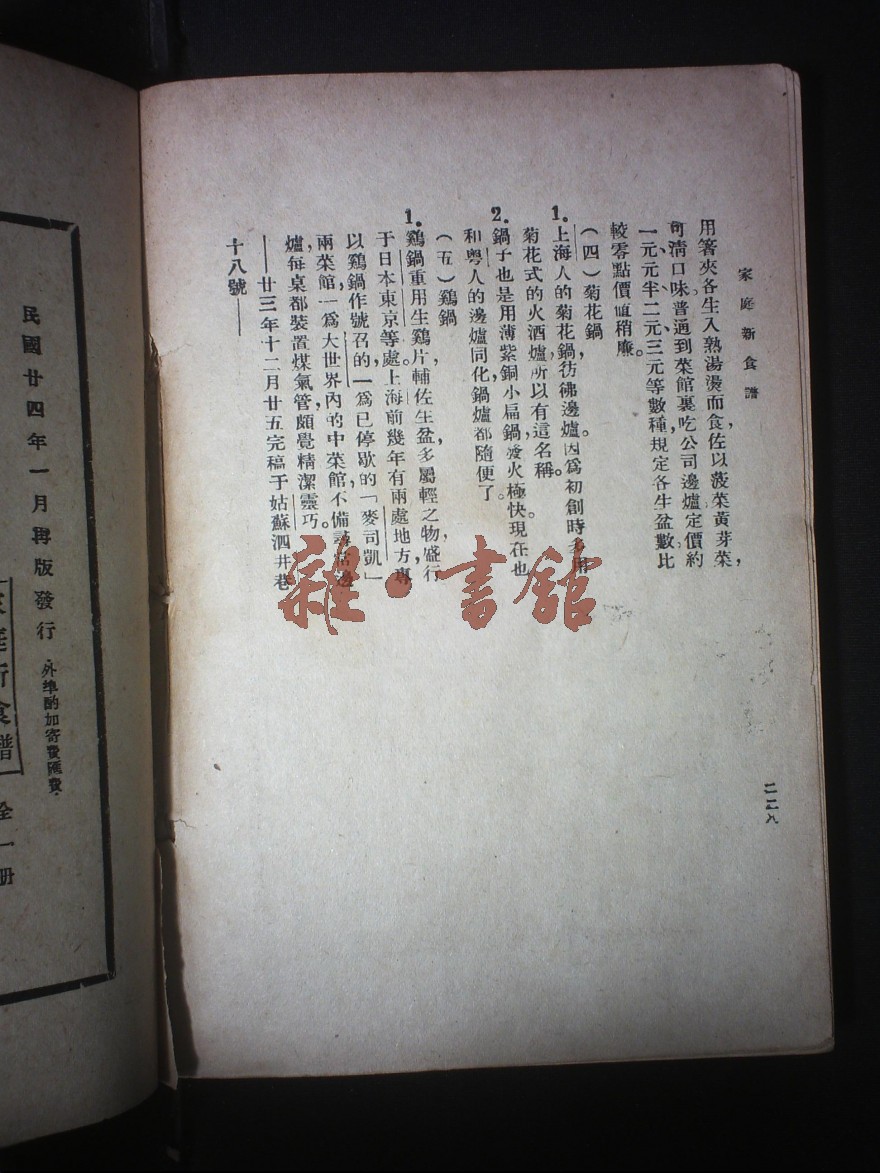 家庭新食譜
用箸夾各生入熟湯燙而食佐以菠菜黃芽菜,
可淸口味普通到菜館裏吃公司邊爐定價約
一元、元半二元、三元等數種規定各生盆數比
較零點價値稍廉。
(四)菊花鍋,
1.上海人的菊花鍋彷彿邊爐。因爲初創時多用
菊花式的火酒爐所以有這名稱。
2.鍋子也是用薄紫銅小扁鍋,發火極快現在也
和粤人的邊爐同化鍋爐都隨便了。
(五)鷄鍋
1.鷄鍋重用生鷄片輔佐生盆多屬輕之物盛行
于日本東京等處。上海前幾年有兩處地方專
以鷄鍋作號召的一爲已停歇的「麥司凱」
兩菜館一爲大世界內的中菜館不備 邊
爐,每桌都裝置煤氣管頗覺精潔靈巧。
——廿三年十二月廿五完稿于姑蘇泗井巷
十八號——
二二八
雜·書館
民國廿四年一月再版發行
外埠酌加寄費匯費
家庭新食譜
全一册